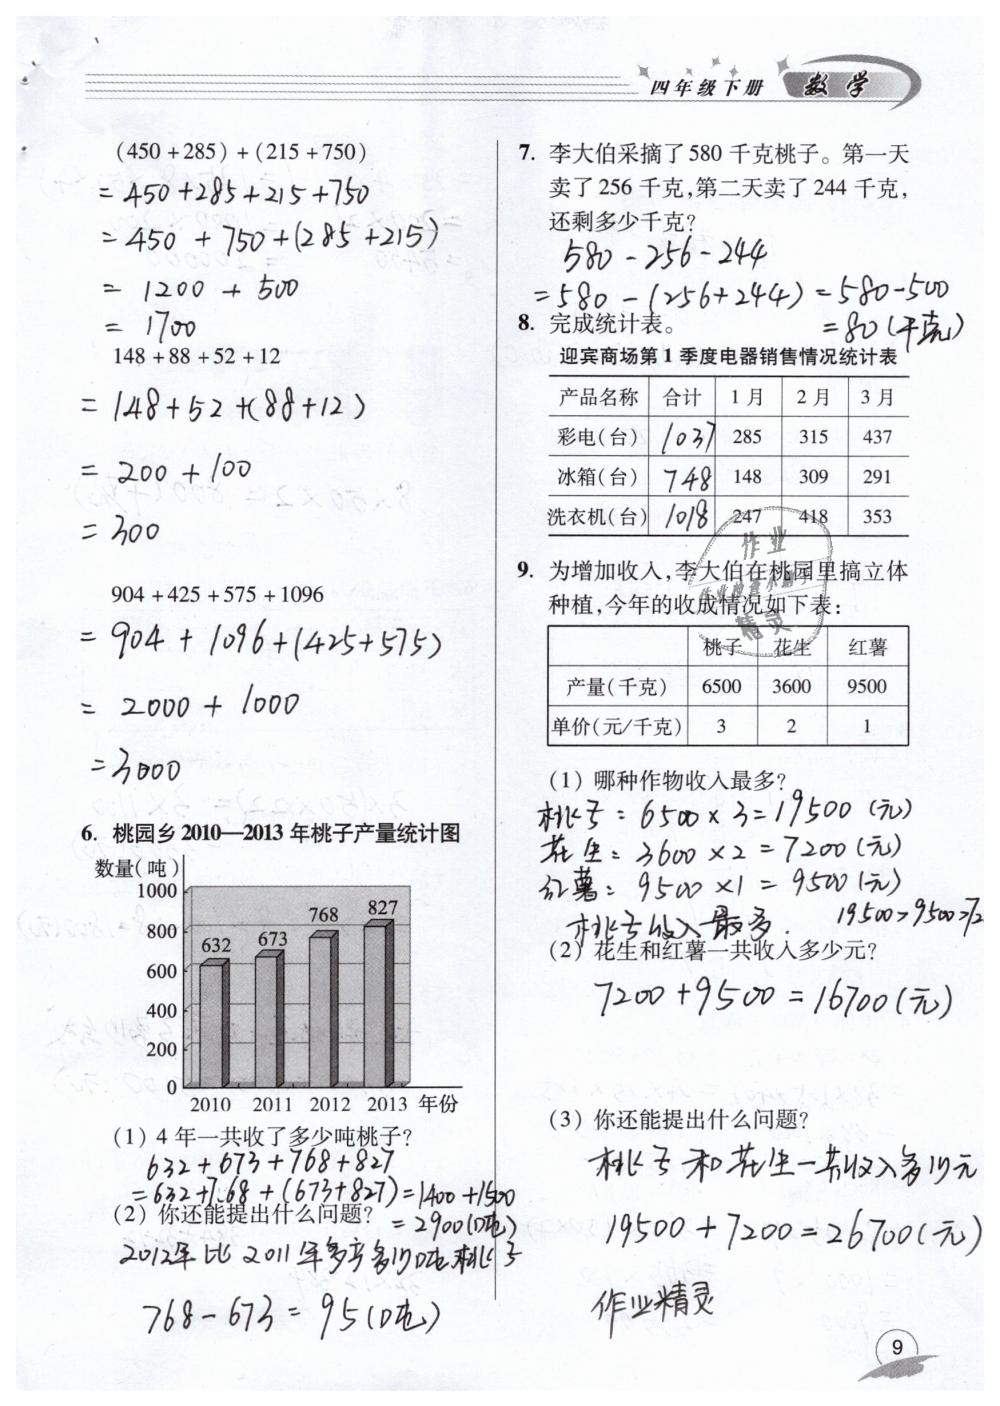 四年级下册 数学
(450+285)+(215+750)
=450+285+215+750
=450+750+(285+215)
=1200+500
=1700
148+88+52+12
=148+52+(88+12)
=200+100
=300
904+425+575+1096
=904+1096+(425+575)
=2000+1000
=3000
6. 桃园乡2010—2013年桃子产量统计图
数量(吨)
1000
800
600
400
200
0
632 673 768 827
2010 2011 2012 2013 年份
(1) 4年一共收了多少吨桃子?
632+673+768+827
=632+768+(673+827)=1400+1500
=2900(吨)
(2) 你还能提出什么问题?
2012年比2011年多产多少吨桃子
768-673=95(吨)
7. 李大伯采摘了580千克桃子。第一天
卖了256千克,第二天卖了244千克,
还剩多少千克?
580-256-244
=580-(256+244)=580-500
=80(千克)
8. 完成统计表。
迎宾商场第1季度电器销售情况统计表
产品名称 合计 1月 2月 3月
彩电(台) 1037 285 315 437
冰箱(台) 748 148 309 291
洗衣机(台) 1018 247 418 353
作业
精灵
9. 为增加收入,李大伯在桃园里搞立体
种植,今年的收成情况如下表:
桃子 花生 红薯
产量(千克) 6500 3600 9500
单价(元/千克) 3 2 1
(1) 哪种作物收入最多?
桃子:6500×3=19500(元)
花生:3600×2=7200(元)
红薯:9500×1=9500(元)
桃子收入最多. 19500>9500>72
(2) 花生和红薯一共收入多少元?
7200+9500=16700(元)
(3) 你还能提出什么问题?
桃子和花生一共收入多少元
19500+7200=26700(元)
作业精灵
9